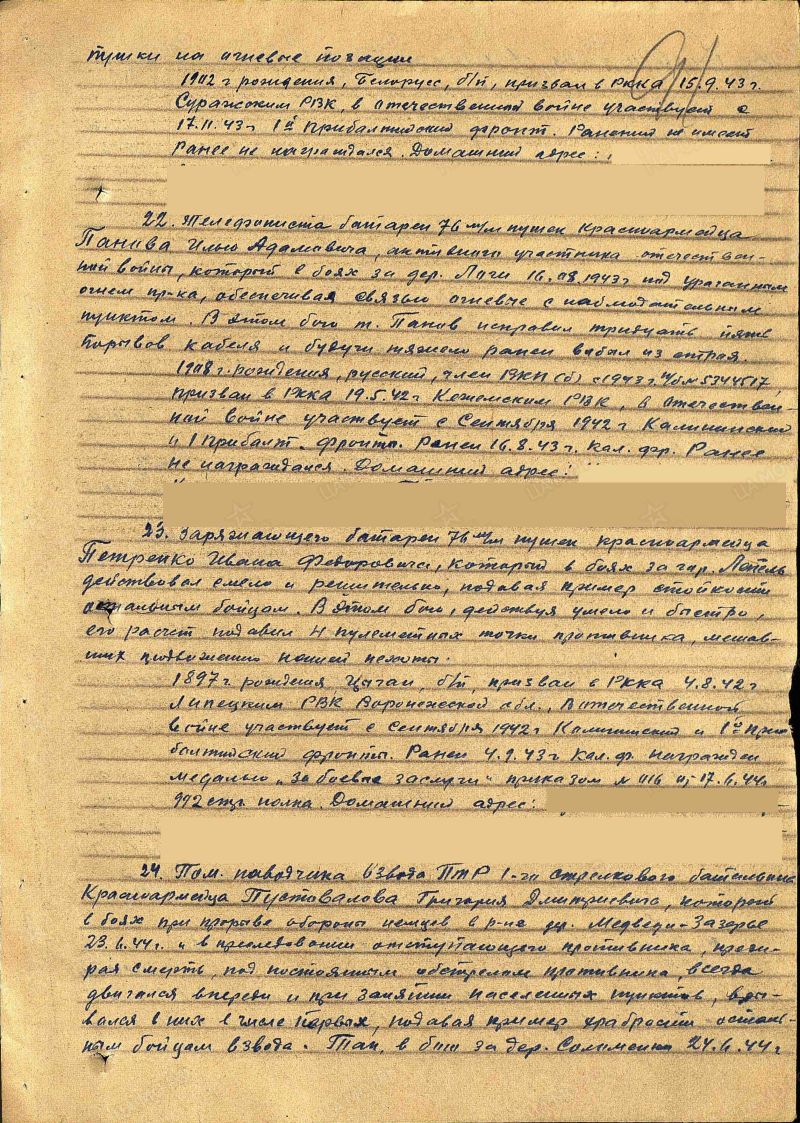 пушки на огневые позации
1902 г рождения, Белорус, б/п, призван в РККА 15.9.43г.
Суражским РВК, в отечественный войне участвует с
17.11.43г 1й Прибалтийский фронт. Ранений не имеет
Ранее не награждался. Домашний адрес:
22. Телефониста батареи 76 м/м пушек красноармейца
Панова Илью Адамавича, активного участника отечествен-
ной войны, который в боях за дер. 16.08.1943г под ураганным
огнем пр-ка, обеспечивая связью огневые с наблюдательным
пунктом. В этом бою т. Панов исправил тридцать пять
порывов кабеля и будучи тяжело ранен выбыл из строя.
1908 г. рождения, русский, член ВКП(б) с 1943г п/б № 5344517,
призван в РККА 19.5.42г Кежемским РВК, в отечествен-
ной войне участвует с Сентября 1942г Калининский
и 1 Прибалт. фронты. Ранен 16.8.43г. Кал. фр. Ранее
не награждался. Домашний адрес:
23. Заряжающего батареи 76 м/м пушек красноармейца
Петренко Ивана Федоровича, который в боях за гор. Лепель
действовал смело и решительно, подавая пример стойкости
остальным бойцам. В этом бою, действуя умело и быстро,
его расчет подавил 4 пулеметных точки противника, мешав-
ших продвижению нашей пехоты.
1897 г. рождения, Цыган, б/п, призван в РККА 4.8.42г
Липецким РВК Воронежской обл., В отечественной
войне участвует с Сентября 1942г Калининский и 1й При-
балтийский фронты. Ранен 4.9.43г Кал. ф. награжден
медалью „За боевые заслуги" приказом № 016 от 17.6.44г.
992 стр. полка. Домашний адрес:
24. Пом. наводчика взвода ПТР 1-го стрелкового батальона
Красноармейца Пустовалова Григория Дмитриевича, который
в боях при прорыве обороны немцев в р-не дер. Медведи-Зазерье
23.6.44г. и в преследовании отступающего противника, прези-
рая смерть, под постоянным обстрелом противника, всегда
двигался впереди и при занятии населенных пунктов, вры-
вался в них в числе первых, подавая пример храбрости осталь-
ным бойцам взвода. Так, в бою за дер. 24.6.44г